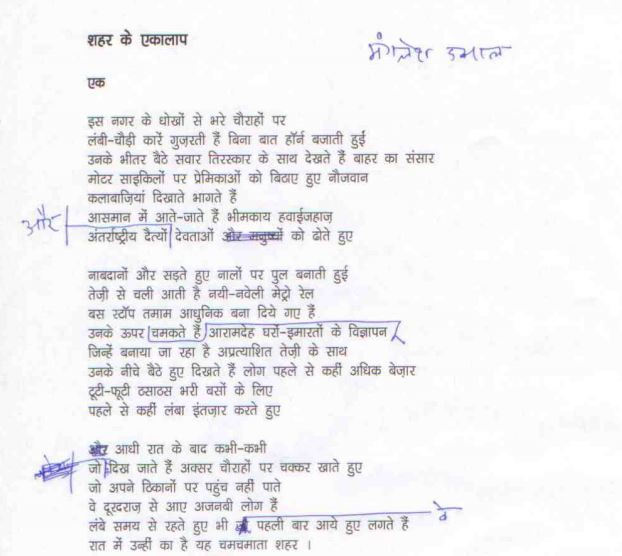 शहर के एकालाप
मंगलेश डबराल
एक
इस नगर के धोखों से भरे चौराहों पर
लंबी-चौड़ी कारें गुज़रती हैं बिना बात हॉर्न बजाती हुईं
उनके भीतर बैठे सवार तिरस्कार के साथ देखते हैं बाहर का संसार
मोटर साइकिलों पर प्रेमिकाओं को बिठाए हुए नौजवान
कलाबाज़ियां दिखाते भागते हैं
आसमान में आते-जाते हैं भीमकाय हवाईजहाज़
और
अंतर्राष्ट्रीय दैत्यों देवताओं और मनुष्यों को ढोते हुए
नाबदानों और सड़ते हुए नालों पर पुल बनाती हुई
तेज़ी से चली आती है नयी-नवेली मेट्रो रेल
बस स्टॉप तमाम आधुनिक बना दिये गए हैं
उनके ऊपर चमकते हैं आरामदेह घरों-इमारतों के विज्ञापन
जिन्हें बनाया जा रहा है अप्रत्याशित तेज़ी के साथ
उनके नीचे बैठे हुए दिखते हैं लोग पहले से कहीं अधिक बेज़ार
टूटी-फूटी ठसाठस भरी बसों के लिए
पहले से कहीं लंबा इंतज़ार करते हुए
और आधी रात के बाद कभी-कभी
जो दिख जाते हैं अक्सर चौराहों पर चक्कर खाते हुए
जो अपने ठिकानों पर पहुंच नहीं पाते
वे दूरदराज़ से आए अजनबी लोग हैं
वे
लंबे समय से रहते हुए भी पहली बार आये हुए लगते हैं
रात में उन्हीं का है यह चमचमाता शहर ।